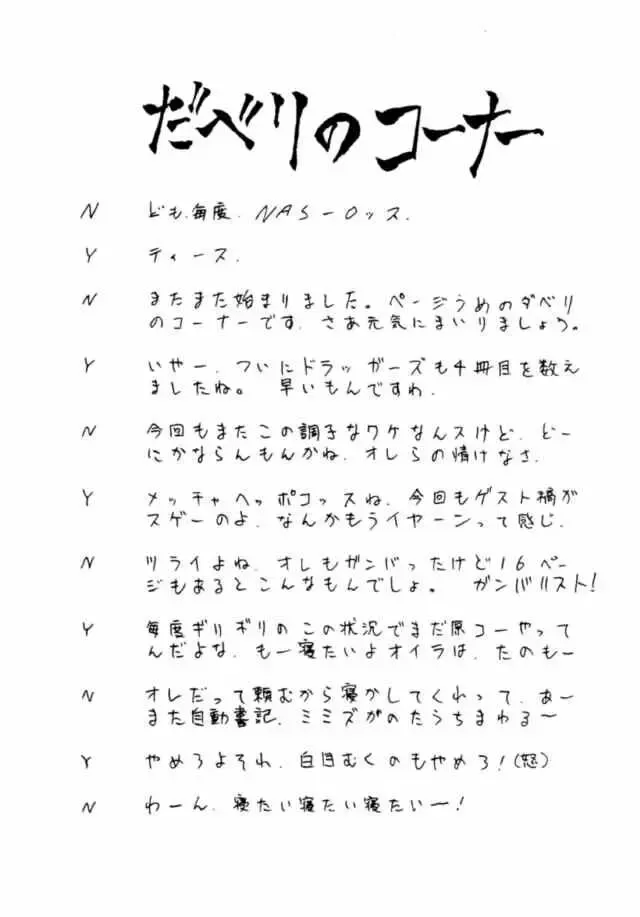 だべりのコーナー
N ども、毎度、NASーロッス、
Y ティース、
N またまた始まりました。ページうめのダベリ
のコーナーです、さあ元気にまいりましょう。
Y いやー、ついにドラッガーズも4冊目を数え
ましたね。 早いもんですわ、
N 今回もまたこの調子なワケなんスけど、どー
にかならんもんかね、オレらの情けなさ、
Y メッチャヘッポコッスね、今回もゲスト稿が
スゲーのよ、なんかもうイヤーンって感じ、
N ツライよね、オレもガンバったけど16ペー
ジもあるとこんなもんでしょ。 ガンバリスト!
Y 毎度ギリギリのこの状況でまだ原コーやって
んだよな、もー寝たいよオイラは、たのもー
N オレだって頼むから寝かしてくれって、あー
また自動書記、ミミズがのたうちまわる〜
Y やめろよそれ、白目むくのもやめろ!(怒)
N わーん、寝たい寝たい寝たい〜!